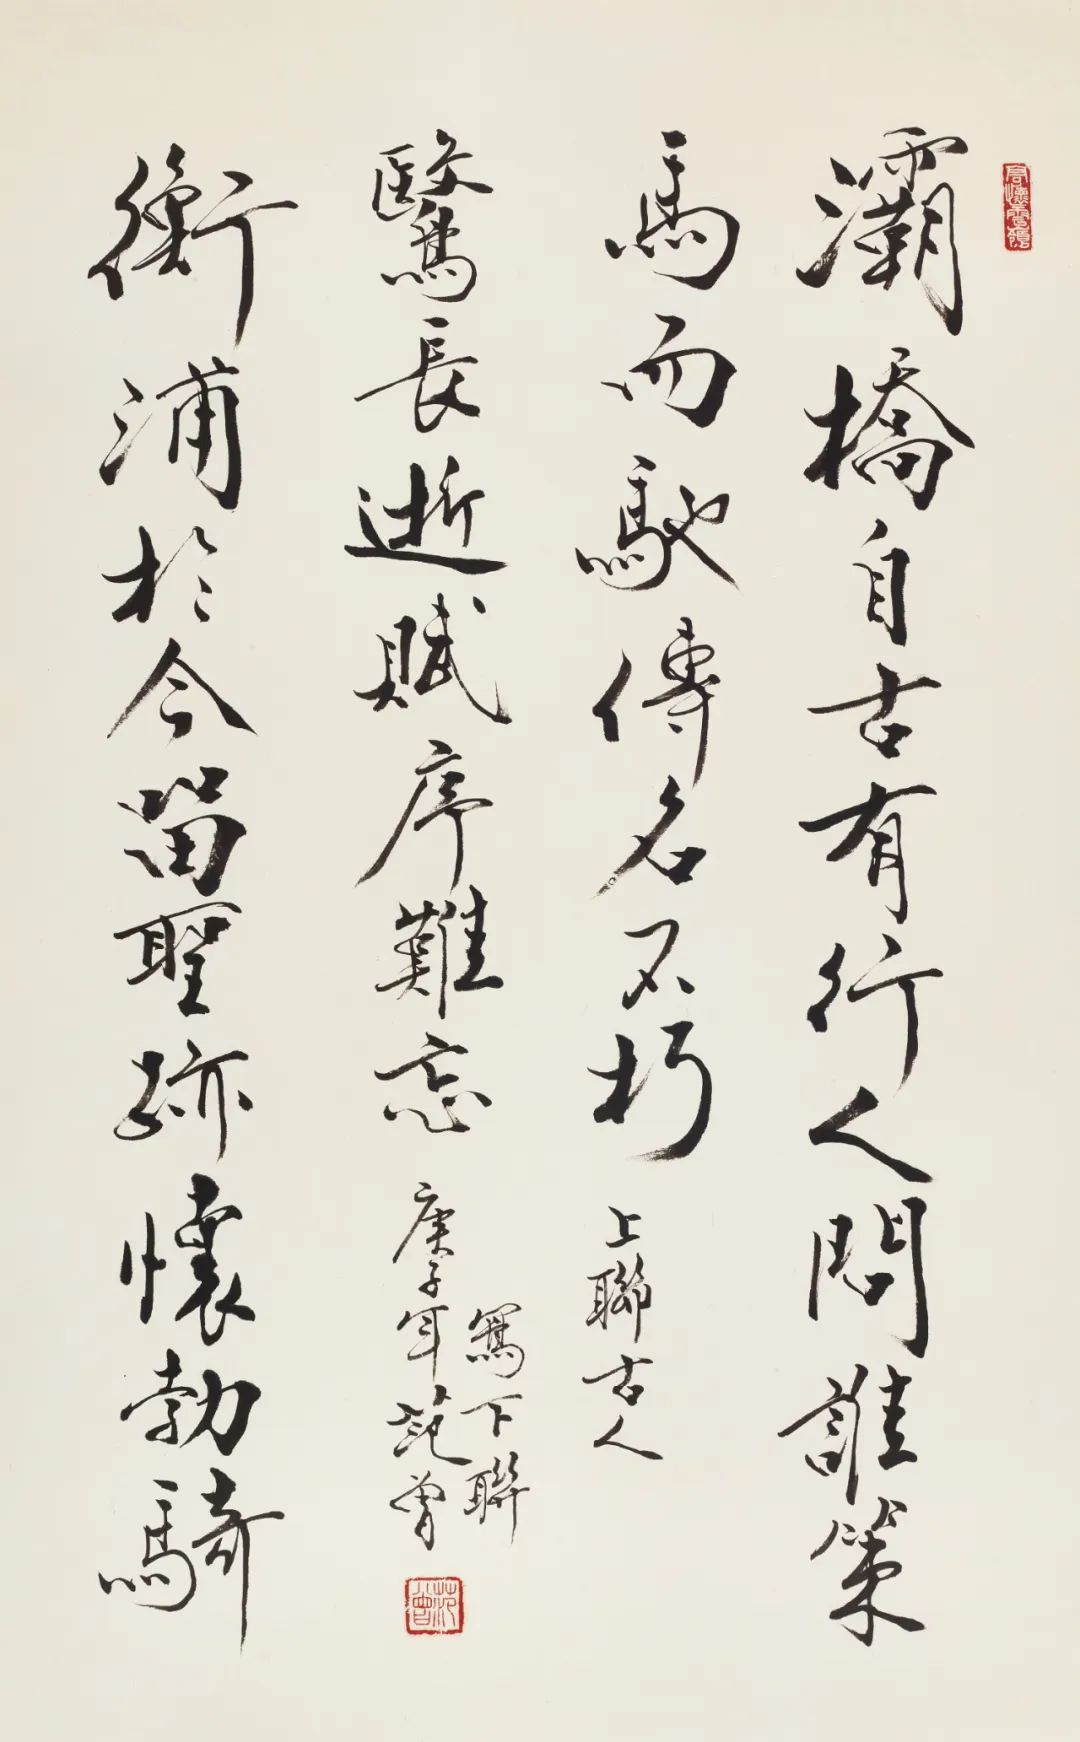 灞橋自古有行人問誰策
馬而馳傳名不朽
上聯古人
衡浦於今留聖跡懷勃騎
鷖長逝賦序難忘
寫下聯
庚子年范曾
范曾